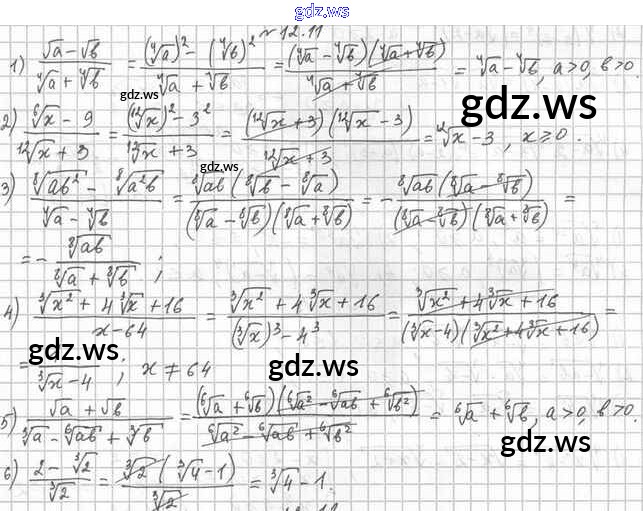 gdz.ws
№12.11
1) (√a − √b)/(⁴√a + ⁴√b) = ((⁴√a)² − (⁴√b)²)/(⁴√a + ⁴√b) = ((⁴√a − ⁴√b)(⁴√a + ⁴√b))/(⁴√a + ⁴√b) = ⁴√a − ⁴√b, a>0, b>0
gdz.ws
gdz.ws
2) (⁶√x − 9)/(¹²√x + 3) = ((¹²√x)² − 3²)/(¹²√x + 3) = ((¹²√x + 3)(¹²√x − 3))/(¹²√x + 3) = ¹²√x − 3, x ≥ 0.
gdz.ws
3) (⁸√ab² − ⁸√a²b)/(⁴√a − ⁴√b) = ⁸√ab(⁸√b − ⁸√a)/((⁸√a − ⁸√b)(⁸√a + ⁸√b)) = − ⁸√ab(⁸√a − ⁸√b)/((⁸√a − ⁸√b)(⁸√a + ⁸√b)) =
= − ⁸√ab/(⁸√a + ⁸√b) ;
4) (³√x² + 4³√x + 16)/(x − 64) = (³√x² + 4³√x + 16)/((³√x)³ − 4³) = (³√x² + 4³√x + 16)/((³√x − 4)(³√x² + 4³√x + 16)) =
gdz.ws
gdz.ws
= /(³√x − 4) ; x ≠ 64
5) (√a + √b)/(³√a − ⁶√ab + ³√b) = (⁶√a + ⁶√b)(⁶√a² − ⁶√ab + ⁶√b²)/(⁶√a² − ⁶√ab + ⁶√b²) = ⁶√a + ⁶√b, a>0, b>0.
gdz.ws
6) (2 − ³√2)/³√2 = ³√2(³√4 − 1)/³√2 = ³√4 − 1.